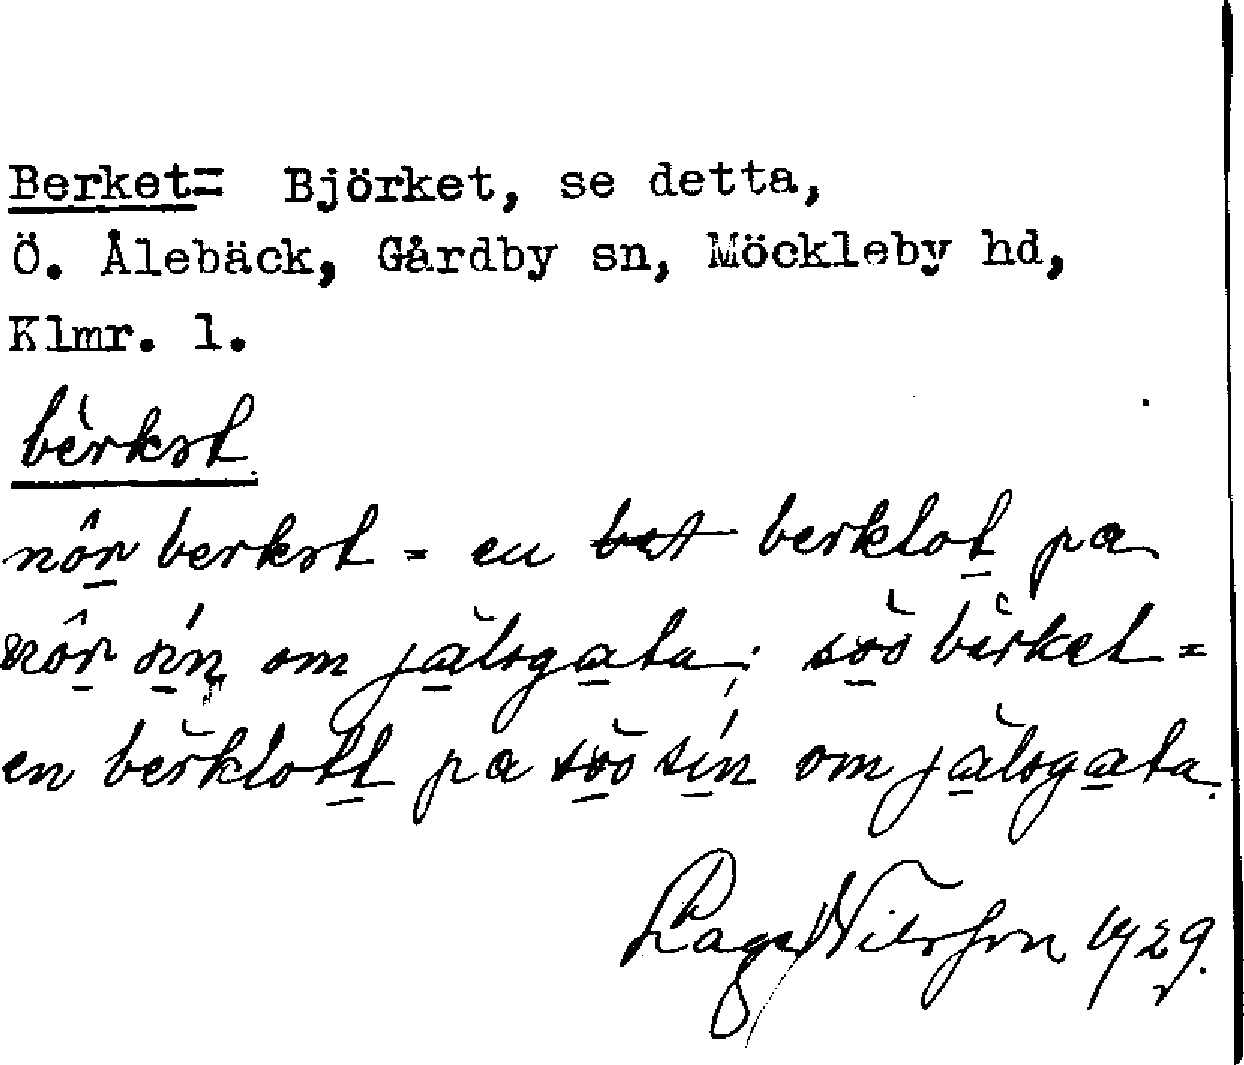 Berket= Björket, se detta,
Ö. Ålebäck, Gårdby sn, Möckleby hd,
Klmr. l.
bèrkət
nôr berkət = en bet berklot pa
nôr sín om jàləgata; söö bèrkət =
en bèrklott pa söö sín om jàləgata.
Nilsson 1929.